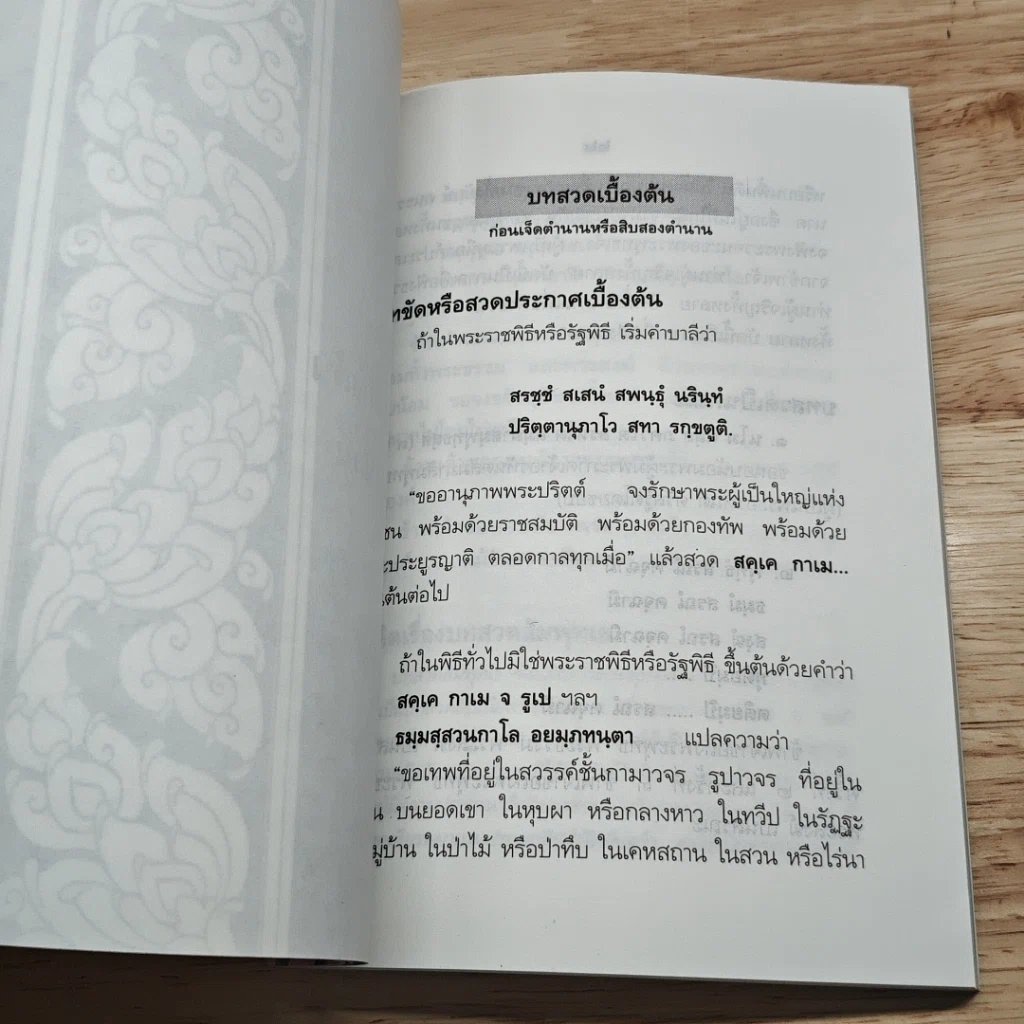 บทสวดเบื้องต้น
ก่อนเจ็ดตำนานหรือสิบสองตำนาน
ขัดหรือสวดประกาศเบื้องต้น
ถ้าในพระราชพิธีหรือรัฐพิธี เริ่มคำบาลีว่า
สรชฺชํ สเสนํ สพนฺธุํ นรินฺทํ
ปริตฺตานุภาโว สทา รกฺขตูติ.
“ขออานุภาพพระปริตต์ จงรักษาพระผู้เป็นใหญ่แห่ง
ชน พร้อมด้วยราชสมบัติ พร้อมด้วยกองทัพ พร้อมด้วย
ประยูรญาติ ตลอดกาลทุกเมื่อ” แล้วสวด สคฺเค กาเม...
ต้นต่อไป
ถ้าในพิธีทั่วไปมิใช่พระราชพิธีหรือรัฐพิธี ขึ้นต้นด้วยคำว่า
สคฺเค กาเม จ รูเป ฯลฯ
ธมฺมสฺสวนกาโล อยมฺภทนฺตา แปลความว่า
“ขอเทพที่อยู่ในสวรรค์ชั้นกามาวจร รูปาวจร ที่อยู่ใน
น บนยอดเขา ในหุบผา หรือกลางหาว ในทวีป ในรัฏฐะ
มู่บ้าน ในป่าไม้ หรือป่าทึบ ในเคหสถาน ในสวน หรือไร่นา